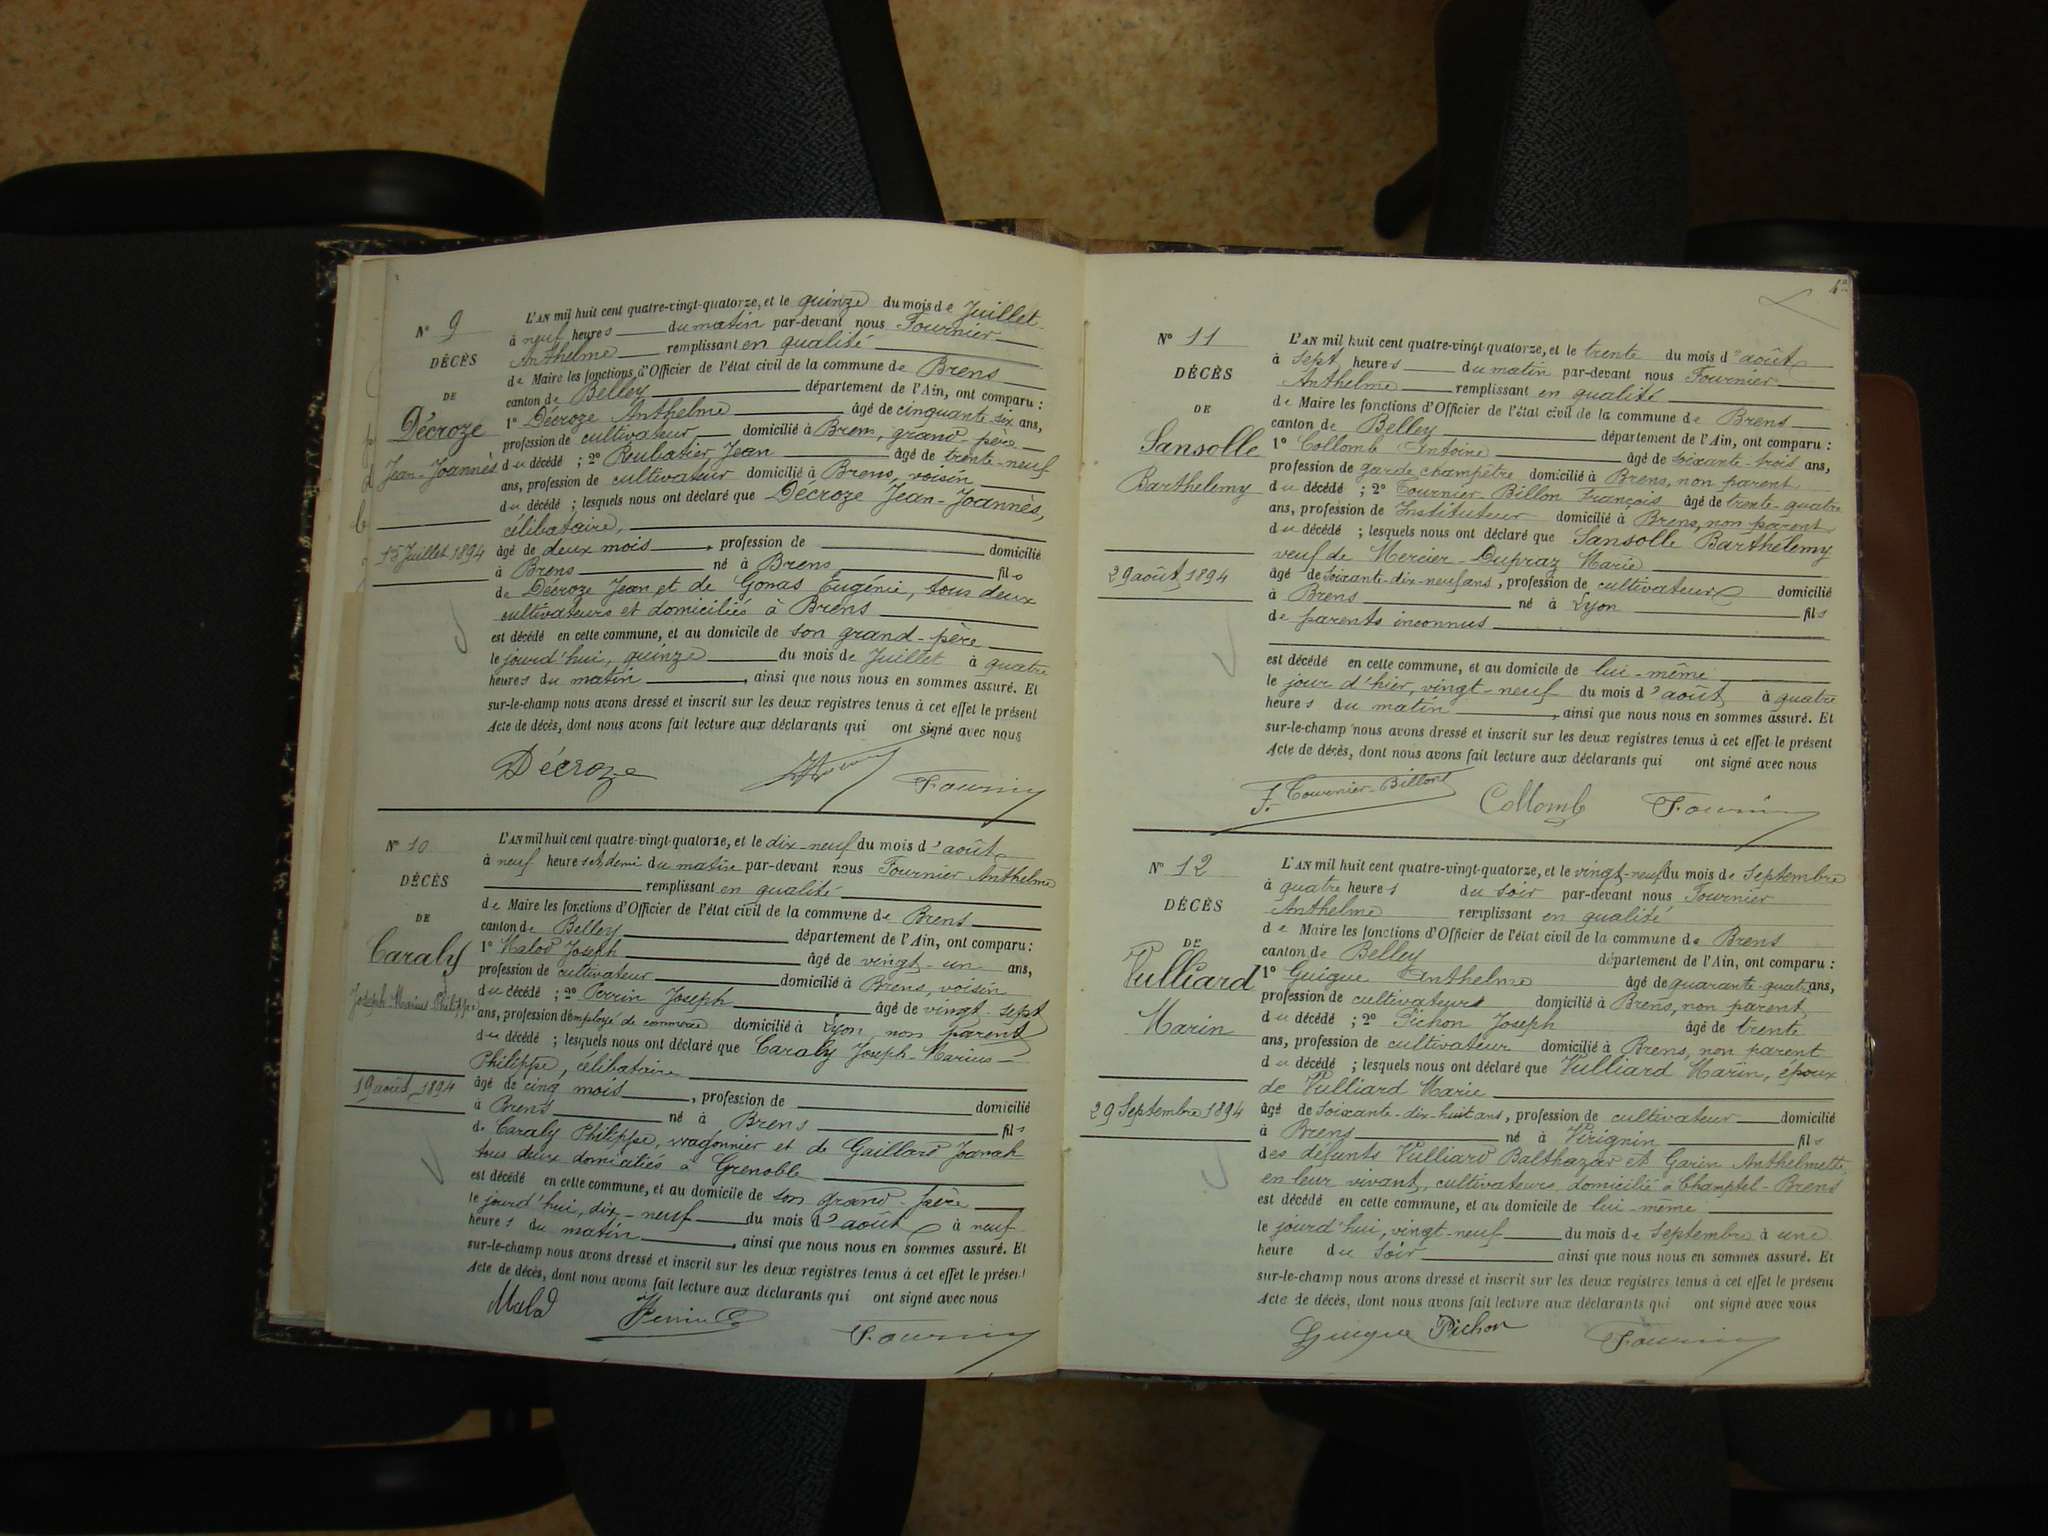 N° 9
DÉCÈS
DE
Décroze
Jean-Joannès
15 Juillet 1894
L'AN mil huit cent quatre-vingt-quatorze, et le quinze du mois de Juillet
à neuf heures du matin par-devant nous Fournier
Anthelme remplissant en qualité
de Maire les fonctions d'Officier de l'état civil de la commune de Brens
canton de Belley département de l'Ain, ont comparu :
1° Décroze Anthelme âgé de cinquante-six ans,
profession de cultivateur domicilié à Brens, grand-père
du décédé ; 2° Roubatier Jean âgé de trente-neuf
ans, profession de cultivateur domicilié à Brens, voisin
du décédé ; lesquels nous ont déclaré que Décroze Jean-Joannès,
célibataire,
âgé de deux mois, profession de domicilié
à Brens né à Brens fils
de Décroze Jean et de Gonas Eugénie, tous deux
cultivateurs et domiciliés à Brens
est décédé en cette commune, et au domicile de son grand-père
le jourd'hui, quinze du mois de Juillet à quatre
heures du matin, ainsi que nous nous en sommes assuré. Et
sur-le-champ nous avons dressé et inscrit sur les deux registres tenus à cet effet le présent
Acte de décès, dont nous avons fait lecture aux déclarants qui ont signé avec nous
Décroze Fournier
N° 10
DÉCÈS
DE
Caraly
Joseph Marius Philippe
19 août 1894
L'AN mil huit cent quatre-vingt-quatorze, et le dix-neuf du mois d'août
à neuf heures et demi du matin par-devant nous Fournier Anthelme
remplissant en qualité
de Maire les fonctions d'Officier de l'état civil de la commune de Brens
canton de Belley département de l'Ain, ont comparu :
1° Malod Joseph âgé de vingt-un ans,
profession de cultivateur domicilié à Brens, voisin
du décédé ; 2° Perrin Joseph âgé de vingt-sept
ans, profession d'employé de commerce domicilié à Lyon, non parent
du décédé ; lesquels nous ont déclaré que Caraly Joseph-Marius-
Philippe, célibataire
âgé de cinq mois, profession de domicilié
à Brens né à Brens fils
de Caraly Philippe, wagonnier et de Gaillard Joanah
tous deux domiciliés à Grenoble
est décédé en cette commune, et au domicile de son grand-père
le jourd'hui, dix-neuf du mois d'août à neuf
heures du matin, ainsi que nous nous en sommes assuré. Et
sur-le-champ nous avons dressé et inscrit sur les deux registres tenus à cet effet le présent
Acte de décès, dont nous avons fait lecture aux déclarants qui ont signé avec nous
Malod Perrin Fournier
N° 11
DÉCÈS
DE
Sansolle
Barthelemy
29 août 1894
L'AN mil huit cent quatre-vingt-quatorze, et le trente du mois d'août
à sept heures du matin par-devant nous Fournier
Anthelme remplissant en qualité
de Maire les fonctions d'Officier de l'état civil de la commune de Brens
canton de Belley département de l'Ain, ont comparu :
1° Collomb Antoine âgé de soixante-trois ans,
profession de garde champêtre domicilié à Brens, non parent
du décédé ; 2° Tournier-Billon François âgé de trente-quatre
ans, profession de Instituteur domicilié à Brens, non parent
du décédé ; lesquels nous ont déclaré que Sansolle Barthélemy
veuf de Mercier-Dupraz Marie
âgé de soixante-dix-neuf ans, profession de cultivateur domicilié
à Brens né à Lyon fils
de parents inconnus
est décédé en cette commune, et au domicile de lui-même
le jour d'hier, vingt-neuf du mois d'août à quatre
heures du matin, ainsi que nous nous en sommes assuré. Et
sur-le-champ nous avons dressé et inscrit sur les deux registres tenus à cet effet le présent
Acte de décès, dont nous avons fait lecture aux déclarants qui ont signé avec nous
F. Tournier-Billon Collomb Fournier
N° 12
DÉCÈS
DE
Vulliard
Marin
29 Septembre 1894
L'AN mil huit cent quatre-vingt-quatorze, et le vingt-neuf du mois de Septembre
à quatre heures du soir par-devant nous Fournier
Anthelme remplissant en qualité
de Maire les fonctions d'Officier de l'état civil de la commune de Brens
canton de Belley département de l'Ain, ont comparu :
1° Guigue Anthelme âgé de quarante-quatre ans,
profession de cultivateur domicilié à Brens, non parent
du décédé ; 2° Pichon Joseph âgé de trente
ans, profession de cultivateur domicilié à Brens, non parent
du décédé ; lesquels nous ont déclaré que Vulliard Marin, époux
de Vulliard Marie
âgé de soixante-dix-huit ans, profession de cultivateur domicilié
à Brens né à Virignin fils
des défunts Vulliard Balthazar et Garin Anthelmette,
en leur vivant, cultivateurs domicilié à Champtel-Brens
est décédé en cette commune, et au domicile de lui-même
le jourd'hui, vingt-neuf du mois de Septembre à une
heure du soir ainsi que nous nous en sommes assuré. Et
sur-le-champ nous avons dressé et inscrit sur les deux registres tenus à cet effet le présent
Acte de décès, dont nous avons fait lecture aux déclarants qui ont signé avec nous
Guigue Pichon Fournier